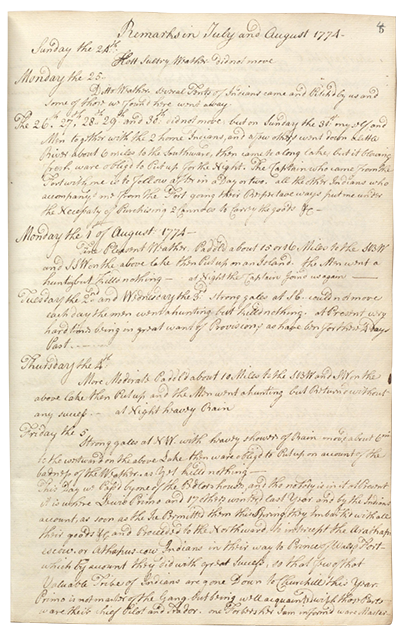 8
Remarks in July and August 1774
Sunday the 24th
Hott Sultry Weather did not move
Monday the 25
Ditto Weather several Tents of Indians came and Pitch'd by us and
Some of those we found here went away.
The 26th 27th 28th 29th and 30th did not move. but on Sunday the 31 myself and
Men together with the 2 home Indians and a few others went down a little
River about 6 miles to the Southward, then came to a long Lake. but it blowing
fresh ware oblig'd to Put up for the Night. The Captain who came from the
Fort with me is to follow after in a Day or two. all the other Indians who
accompanied me from the Fort going their Respective ways put us under
the Necessity of Purchasing 2 Cannoes to Carry the goods &c
Monday the 1 of August 1774
Fine Plesent Weather. Padled about 15 or 16 Miles to the SBW
and SSW on the above Lake then Put up on an Island. the Men went a
hunting but killd nothing at Night the Captain joind us again
Tuesday the 2d and Wednesday the 3d Strong gales at S could not move
each day the men went a hunting but killd nothing. at Present very
hard times being in great want of Provisions, as have ben for these days
Past
Thursday the 4th
More Moderate Padled about 10 Miles to the SBW and SW on the
above Lake then Put up and the Men went a hunting but Returned without
any success at Night heavy Rain
Friday the 5
Strong gales at NW with heavy showers of Rain. moved about
to the westward on the above Lake then ware oblig'd to Put up on account of the
badness of the Weather. as yet killd nothing
This Day we Pass'd by one of the Pedlers houses, and the
it is where Primo and 17 others wintred last Year. and by the Indians
account, as soon as the Ice Permitted them this Spring they Imbark'd with all
their goods &c and proceeded to the Northward to intercept the
or Indians in their way to Prince of Wales Fort
which by account they did with great Success, so that few of that
Valuable Tribe of Indians are gone Down to Churchill this Year.
Primo is not master of the Gang, but being well acquainted with those Parts
ware their Chief Pilot and Trader. one as I am informd ware Master